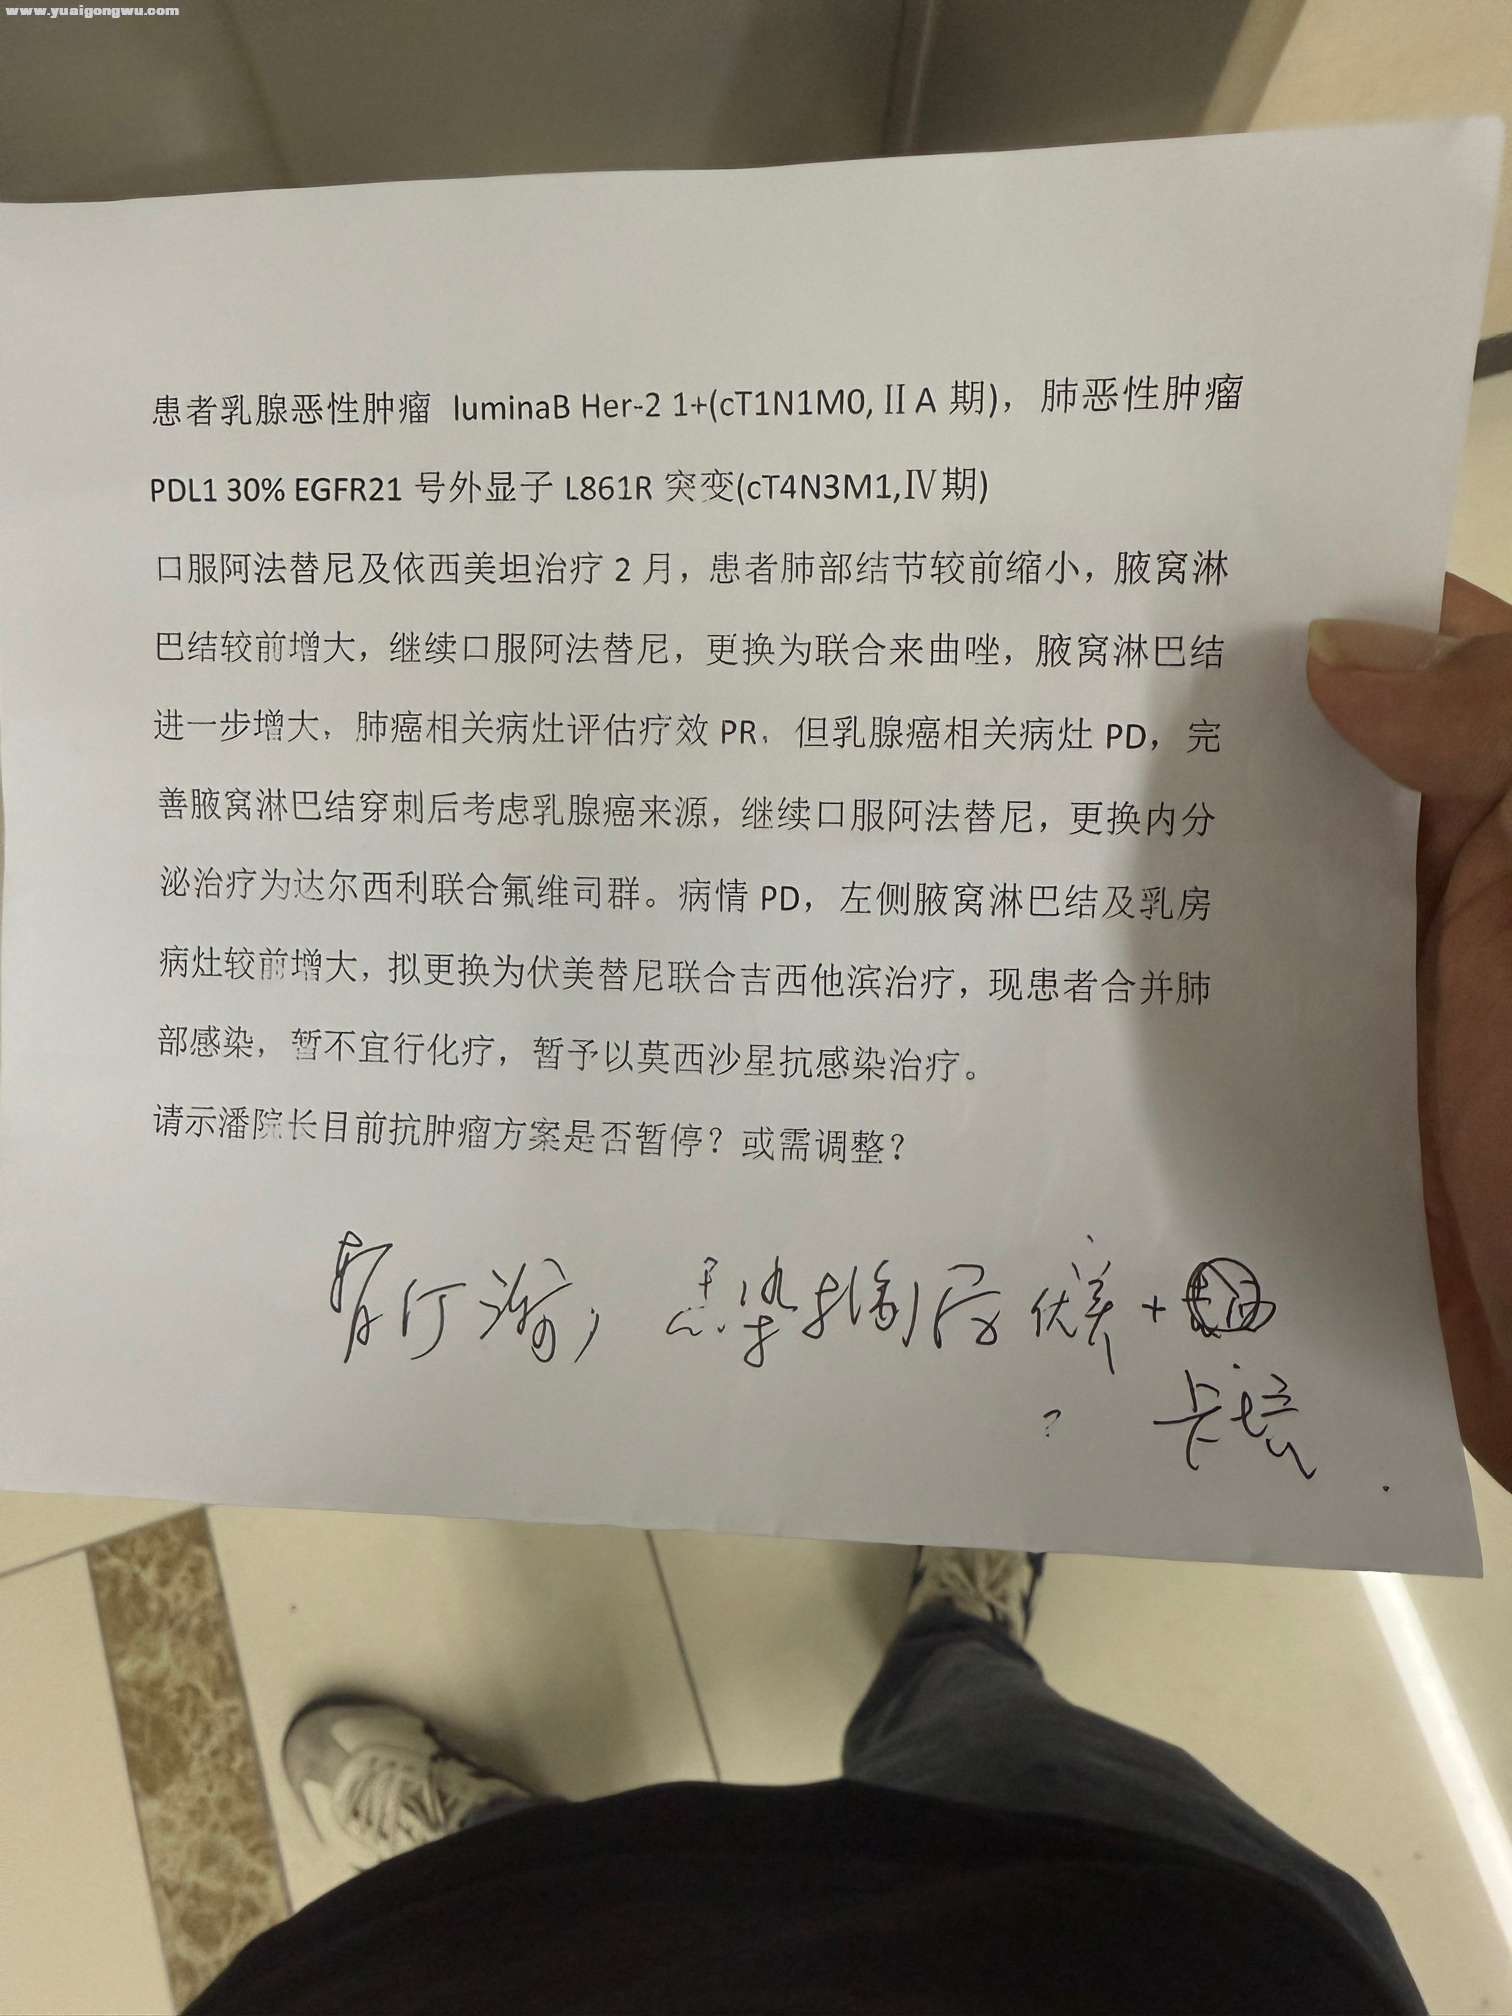 www.yuaigongwu.com
患者乳腺恶性肿瘤 luminaB Her-2 1+(cT1N1M0,ⅡA 期)，肺恶性肿瘤
PDL1 30% EGFR21 号外显子 L861R 突变(cT4N3M1,Ⅳ期)
口服阿法替尼及依西美坦治疗 2 月，患者肺部结节较前缩小，腋窝淋
巴结较前增大，继续口服阿法替尼，更换为联合来曲唑，腋窝淋巴结
进一步增大，肺癌相关病灶评估疗效 PR，但乳腺癌相关病灶 PD，完
善腋窝淋巴结穿刺后考虑乳腺癌来源，继续口服阿法替尼，更换内分
泌治疗为达尔西利联合氟维司群。病情 PD，左侧腋窝淋巴结及乳房
病灶较前增大，拟更换为伏美替尼联合吉西他滨治疗，现患者合并肺
部感染，暂不宜行化疗，暂予以莫西沙星抗感染治疗。
请示潘院长目前抗肿瘤方案是否暂停？或需调整？
感染控制后 伏美 +
? 卡培